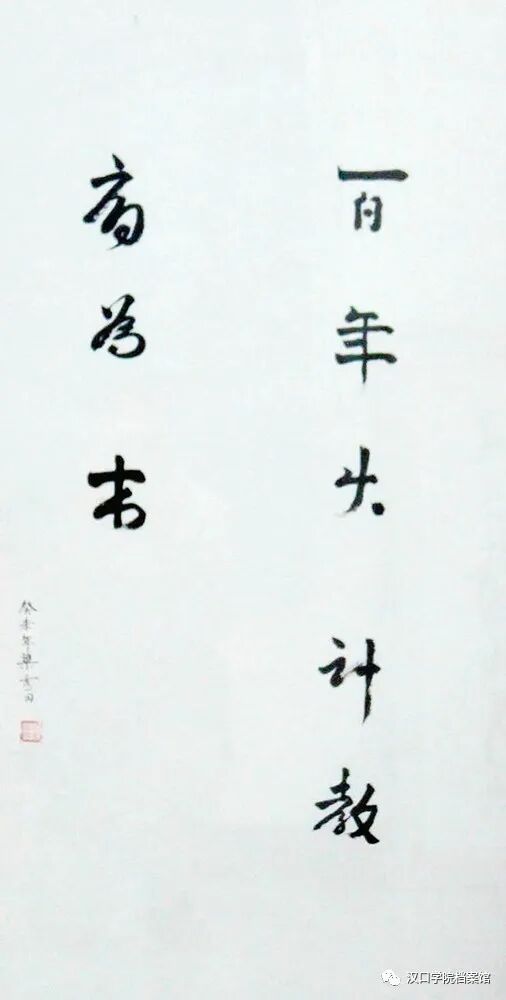 百年大计教
育為本
癸未年
汉口学院档案馆